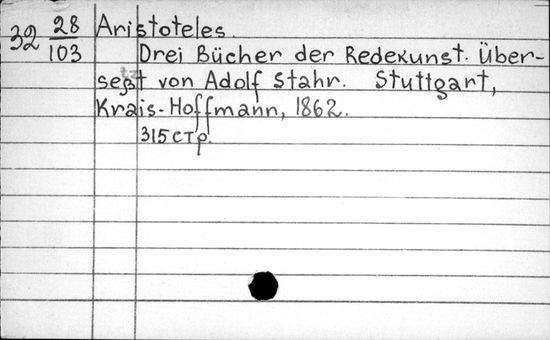 32 28/103 Aristoteles.
Drei Bücher der Redekunst. Über-
setzt von Adolf Stahr. Stuttgart,
Krais-Hoffmann, 1862.
315 стр.